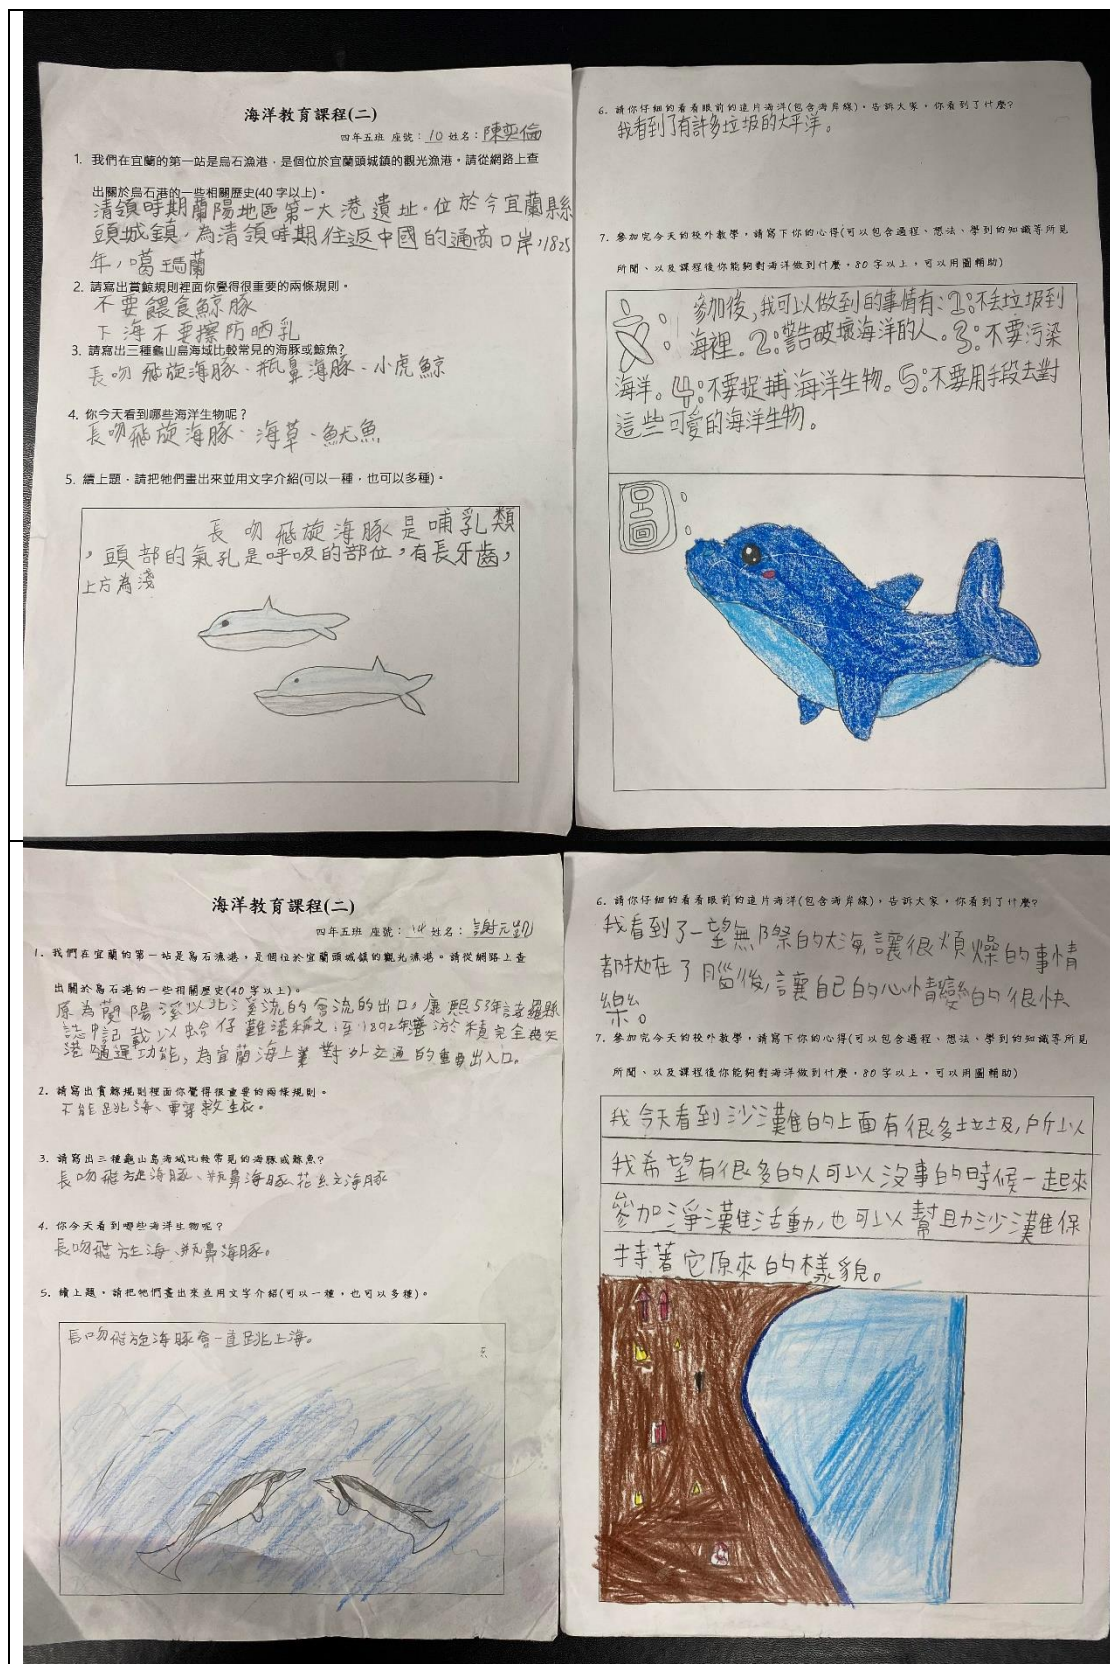 海洋教育課程(二)
四年五班 座號：10 姓名：陳奕倫
1. 我們在宜蘭的第一站是烏石漁港，是個位於宜蘭頭城鎮的觀光漁港。請從網路上查
出關於烏石港的一些相關歷史(40字以上)。
清領時期蘭陽地區第一大港遺址。位於今宜蘭縣
頭城鎮，為清領時期往返中國的通商口岸，1825
年，噶瑪蘭
2. 請寫出賞鯨規則裡面你覺得很重要的兩條規則。
不要餵食鯨豚
下海不要擦防晒乳
3. 請寫出三種龜山島海域比較常見的海豚或鯨魚?
長吻飛旋海豚、瓶鼻海豚、小虎鯨
4. 你今天看到哪些海洋生物呢？
長吻飛旋海豚、海草、魷魚
5. 續上題，請把牠們畫出來並用文字介紹(可以一種，也可以多種)。
長吻飛旋海豚是哺乳類
，頭部的氣孔是呼吸的部位，有長牙齒，
上方為淺
6. 請你仔細的看看眼前的這片海洋(包含海岸線)，告訴大家，你看到了什麼?
我看到了有許多垃圾的太平洋。
7. 參加完今天的校外教學，請寫下你的心得(可以包含過程、想法、學到的知識等所見
所聞、以及課程後你能夠對海洋做到什麼，80字以上，可以用圖輔助)
文：參加後，我可以做到的事情有：1：不丟垃圾到
海裡。2：警告破壞海洋的人。3：不要污染
海洋。4：不要捉捕海洋生物。5：不要用手段去對
這些可愛的海洋生物。
圖：
海洋教育課程(二)
四年五班 座號：14 姓名：謝元
1. 我們在宜蘭的第一站是烏石漁港，是個位於宜蘭頭城鎮的觀光漁港。請從網路上查
出關於烏石港的一些相關歷史(40字以上)。
原為蘭陽溪以北溪流的會流的出口。康熙53年諸羅縣
誌中記載以蛤仔難港稱之，至1892年淤積完全喪失
港通運功能，為宜蘭海上業對外交通的重要出入口。
2. 請寫出賞鯨規則裡面你覺得很重要的兩條規則。
不能跳海、要穿救生衣。
3. 請寫出三種龜山島海域比較常見的海豚或鯨魚?
長吻飛旋海豚、瓶鼻海豚、花紋海豚
4. 你今天看到哪些海洋生物呢？
長吻飛旋海、瓶鼻海豚。
5. 續上題，請把牠們畫出來並用文字介紹(可以一種，也可以多種)。
長吻飛旋海豚會一直跳上海。
6. 請你仔細的看看眼前的這片海洋(包含海岸線)，告訴大家，你看到了什麼?
我看到了一望無際的大海，讓很煩燥的事情
都拋在了腦後，讓自己的心情變的很快
樂。
7. 參加完今天的校外教學，請寫下你的心得(可以包含過程、想法、學到的知識等所見
所聞、以及課程後你能夠對海洋做到什麼，80字以上，可以用圖輔助)
我今天看到沙灘的上面有很多垃圾，所以
我希望有很多的人可以沒事的時候一起來
參加淨灘活動，也可以幫助沙灘保
持著它原來的樣貌。